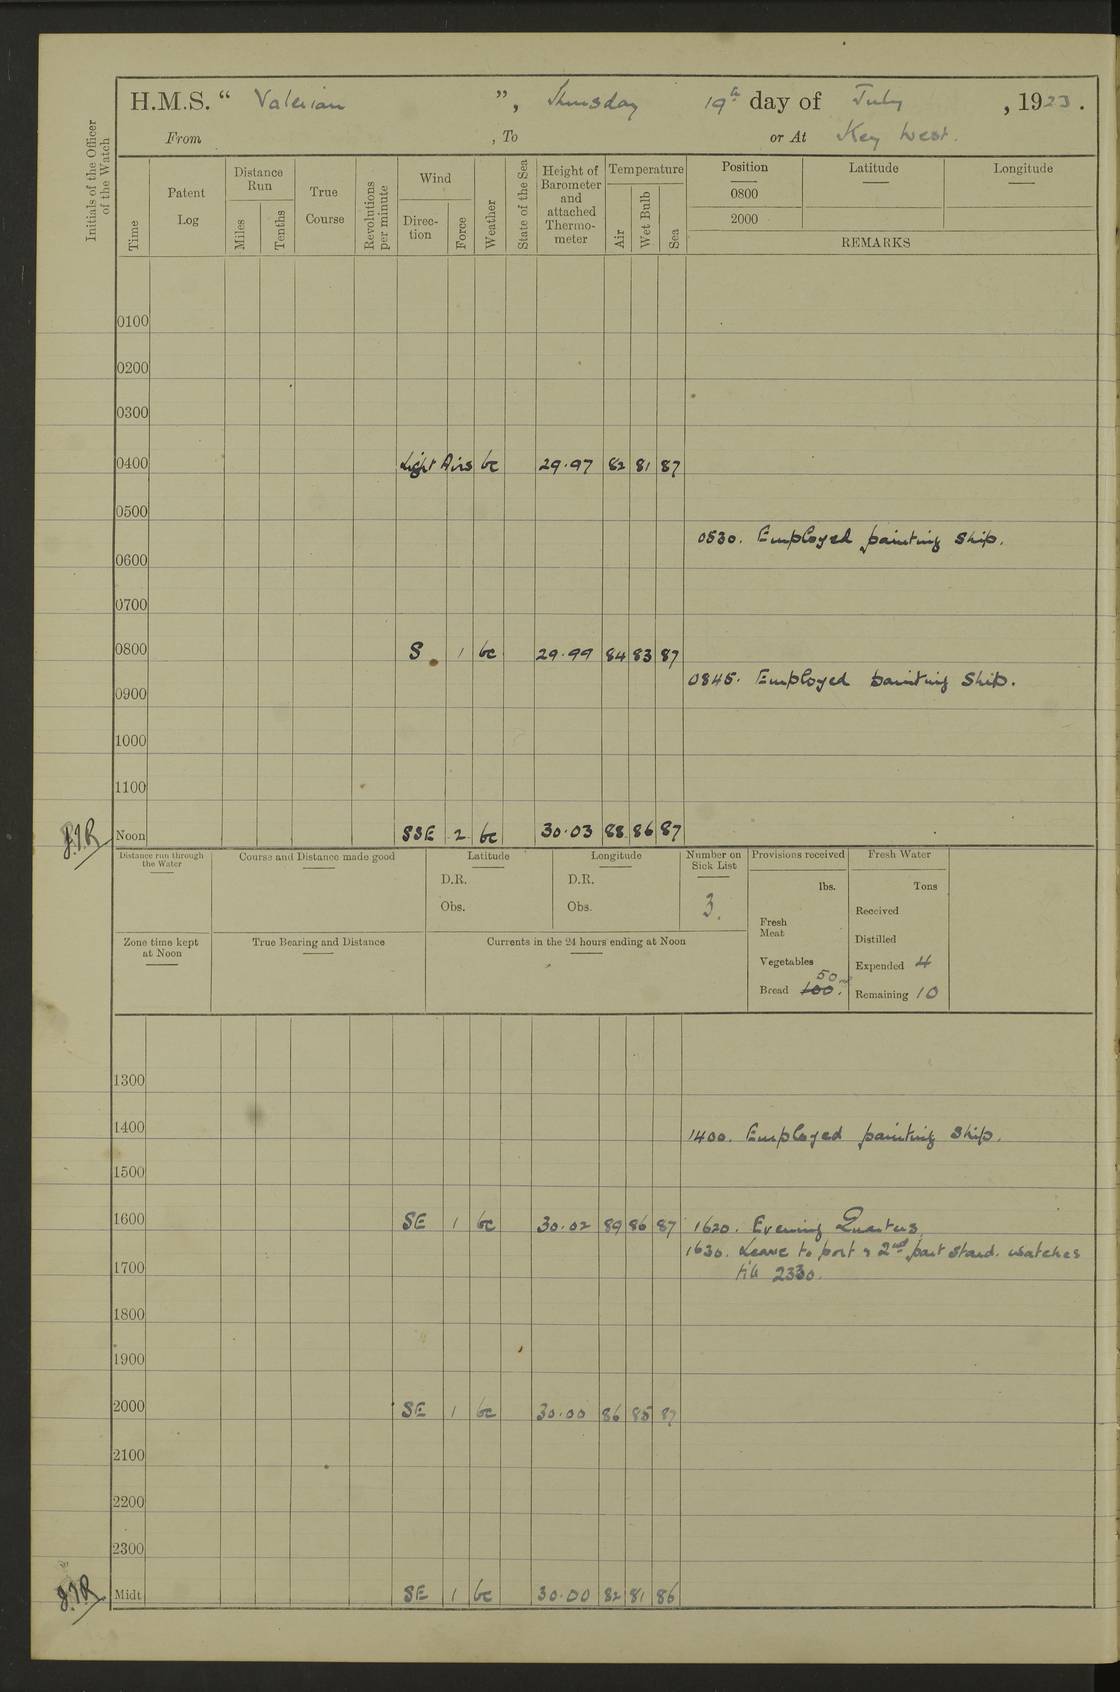 H.M.S. “ Valerian ”, Thursday 19th day of July , 1923 .
From , To or At Key West.
Initials of the Officer of the Watch
Time
Patent Log
Distance Run
Miles
Tenths
True Course
Revolutions per minute
Wind
Direc-tion
Force
Weather
State of the Sea
Height of Barometer and attached Thermo-meter
Temperature
Air
Wet Bulb
Sea
Position Latitude Longitude
0800
2000
REMARKS
0100
0200
0300
0400 Light Airs bc 29.97 82 81 87
0500
0530. Employed painting ship.
0600
0700
0800 S 1 bc 29.99 84 83 87
0845. Employed painting Ship.
0900
1000
1100
J.I.R Noon SSE 2 bc 30.03 88 86 87
Distance run through the Water
Course and Distance made good
Latitude
D.R.
Obs.
Longitude
D.R.
Obs.
Number on Sick List
3.
Provisions received
lbs.
Fresh Meat
Vegetables
50
Bread 100.
Fresh Water
Tons
Received
Distilled
Expended 4
Remaining 10
Zone time kept at Noon
True Bearing and Distance
Currents in the 24 hours ending at Noon
1300
1400
1400. Employed painting ship.
1500
1600 SE 1 bc 30.02 89 86 87 1620. Evening Quarters.
1630. Leave to port & 2nd part Starbd. watches
till 2330.
1700
1800
1900
2000 SE 1 bc 30.00 86 85 87
2100
2200
2300
J.I.R Midt. SE 1 bc 30.00 82 81 86